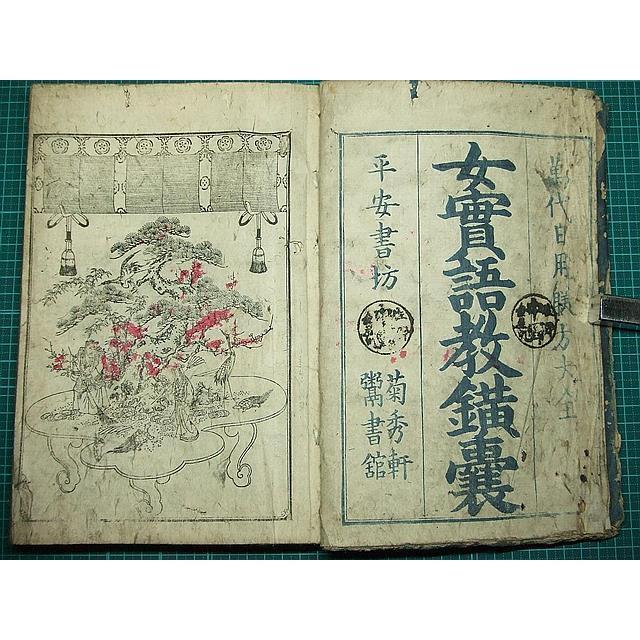 萬代日用勝方大全
女實語教鏡嚢
平安書坊
菊秀軒
鬻書舘